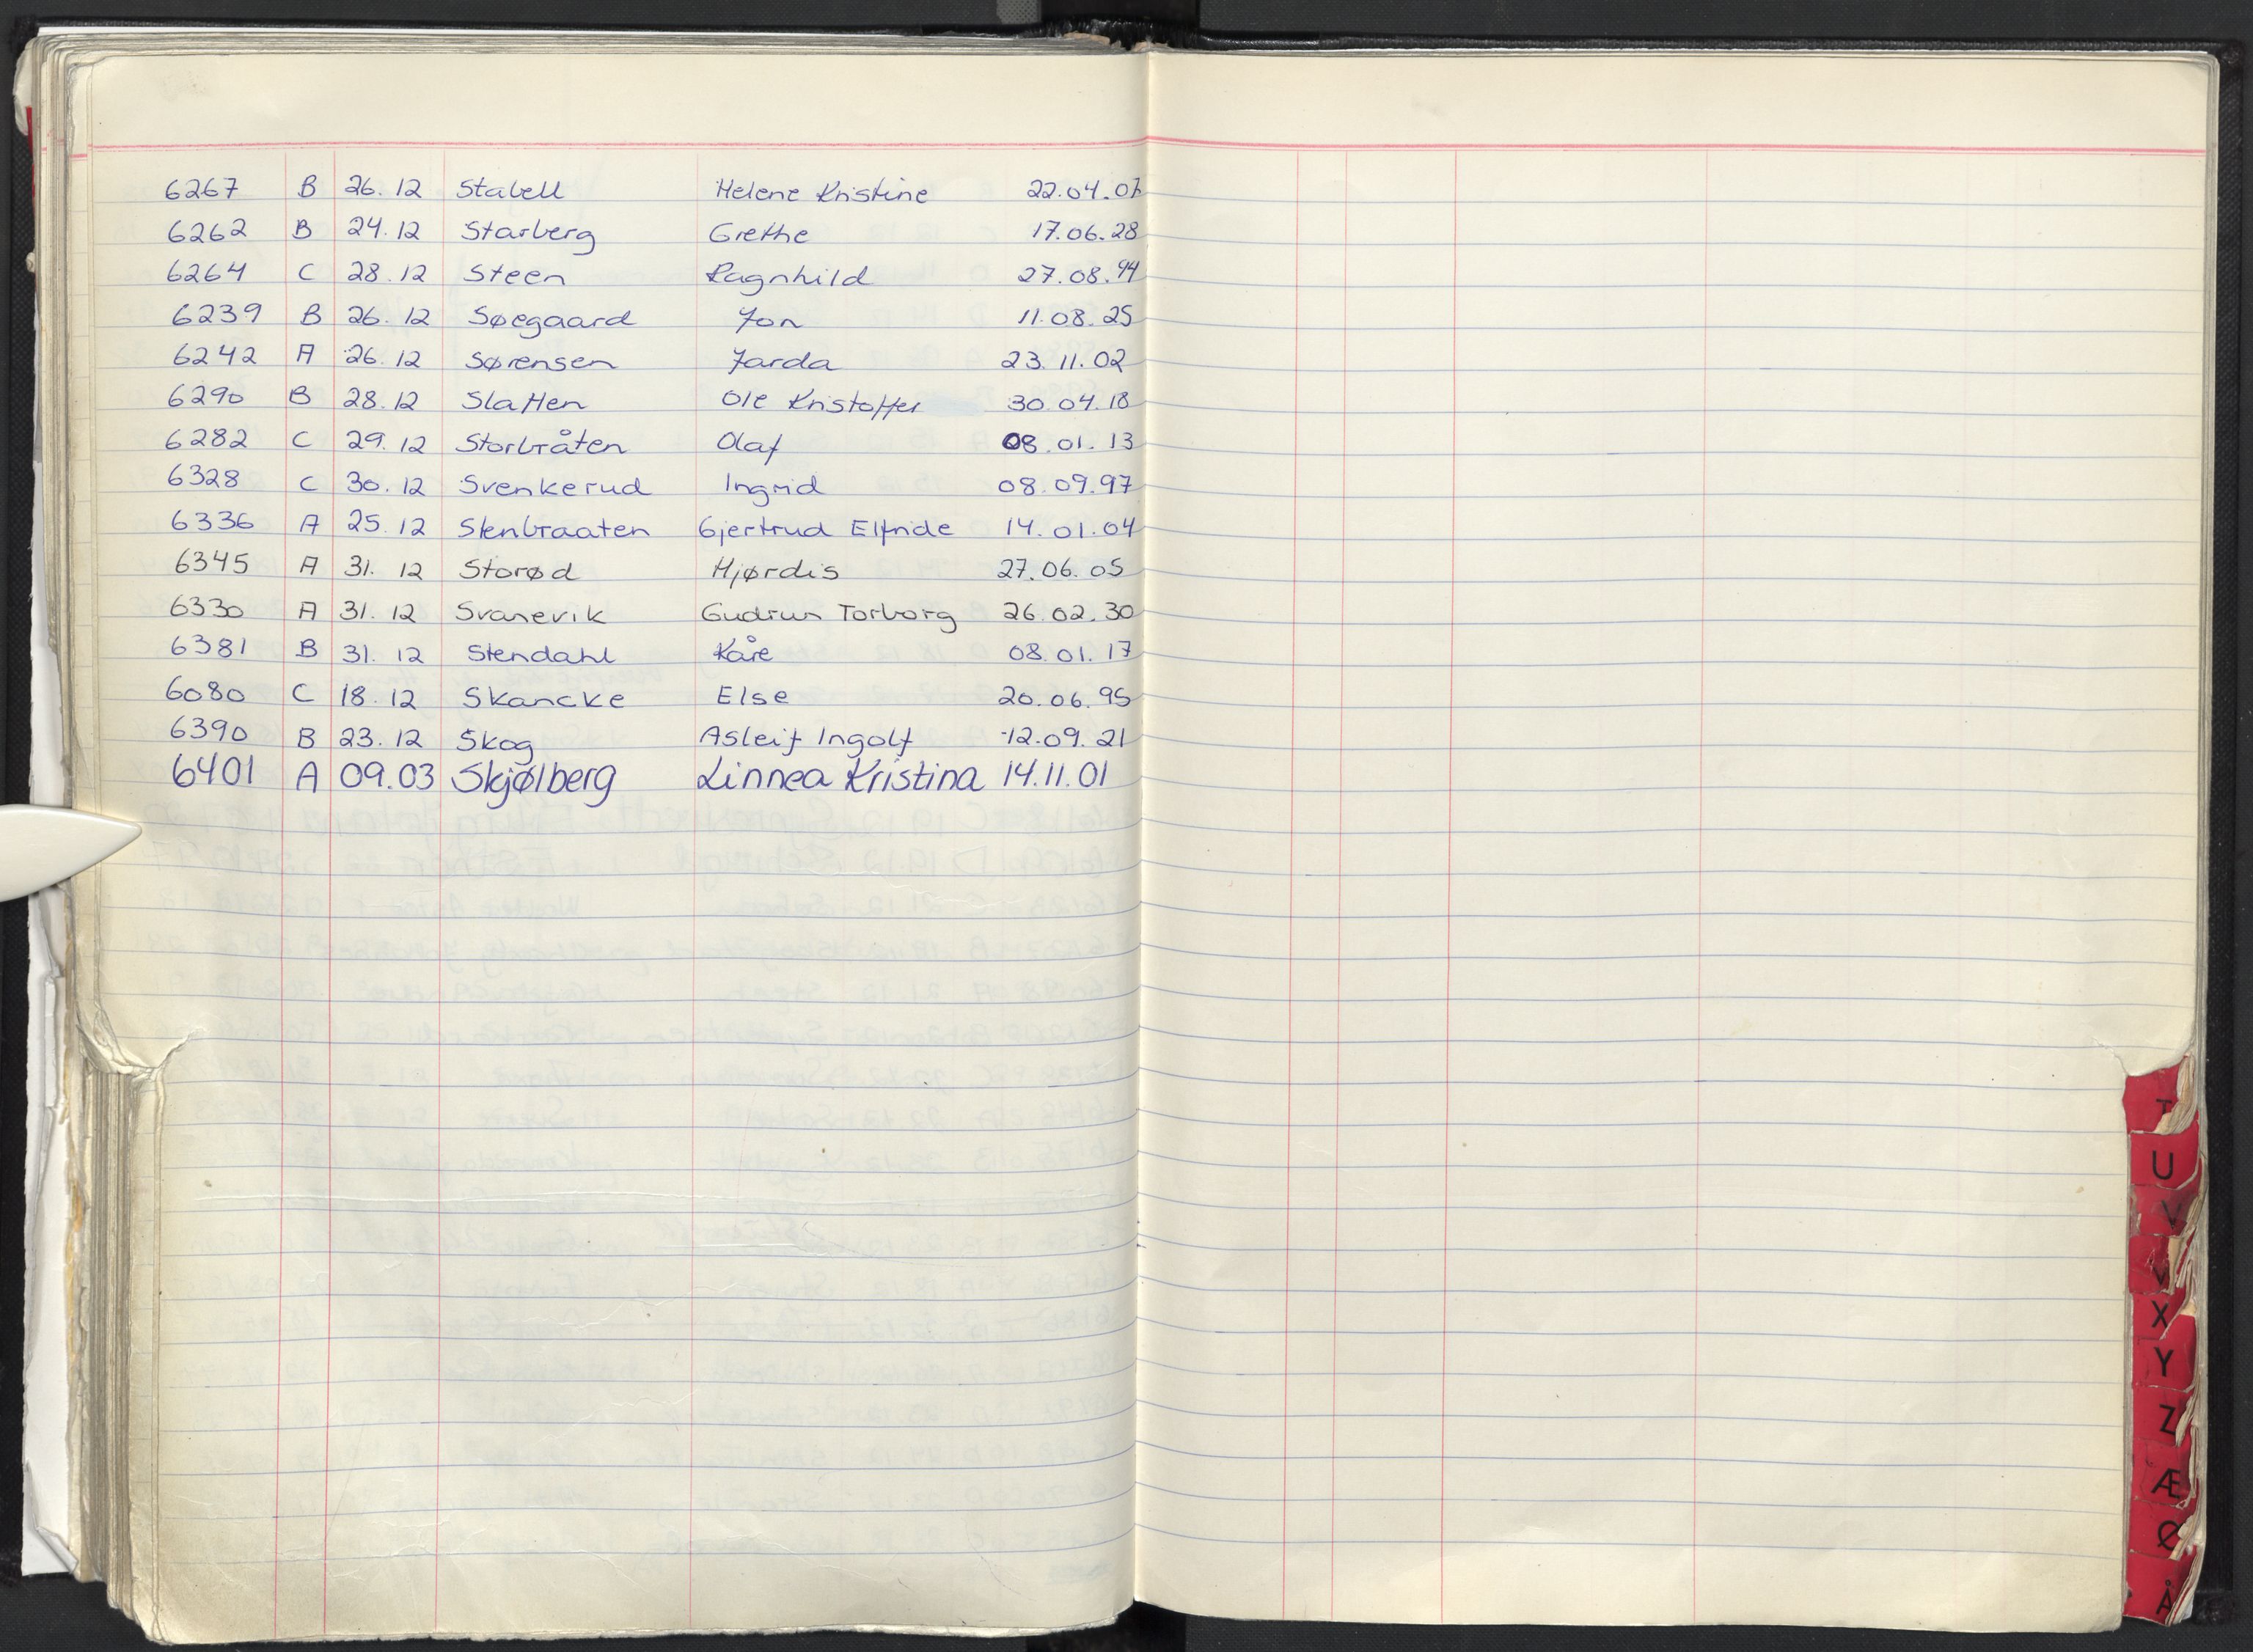 6267 B 26.12 Stabell Helene Kristine 22.04.07
6262 B 24.12 Starberg Grethe 17.06.28
6264 C 28.12 Steen Ragnhild 27.08.94
6239 B 26.12 Søegaard Jon 11.08.25
6242 A 26.12 Sørensen Jarda 23.11.02
6290 B 28.12 Slatten Ole Kristoffer 30.04.18
6282 C 29.12 Storbråten Olaf 08.01.13
6328 C 30.12 Svenkerud Ingrid 08.09.97
6336 A 25.12 Stenbraaten Gjertrud Elfride 14.01.04
6345 A 31.12 Storød Hjørdis 27.06.05
6330 A 31.12 Svanevik Gudrun Torborg 26.02.30
6381 B 31.12 Stendahl Kåre 08.01.17
6080 C 18.12 Skancke Else 20.06.95
6390 B 23.12 Skog Asleif Ingolf 12.09.21
6401 A 09.03 Skjølberg Linnea Kristina 14.11.01
T
U
V
X
Y
Z
Æ
Ø
Å